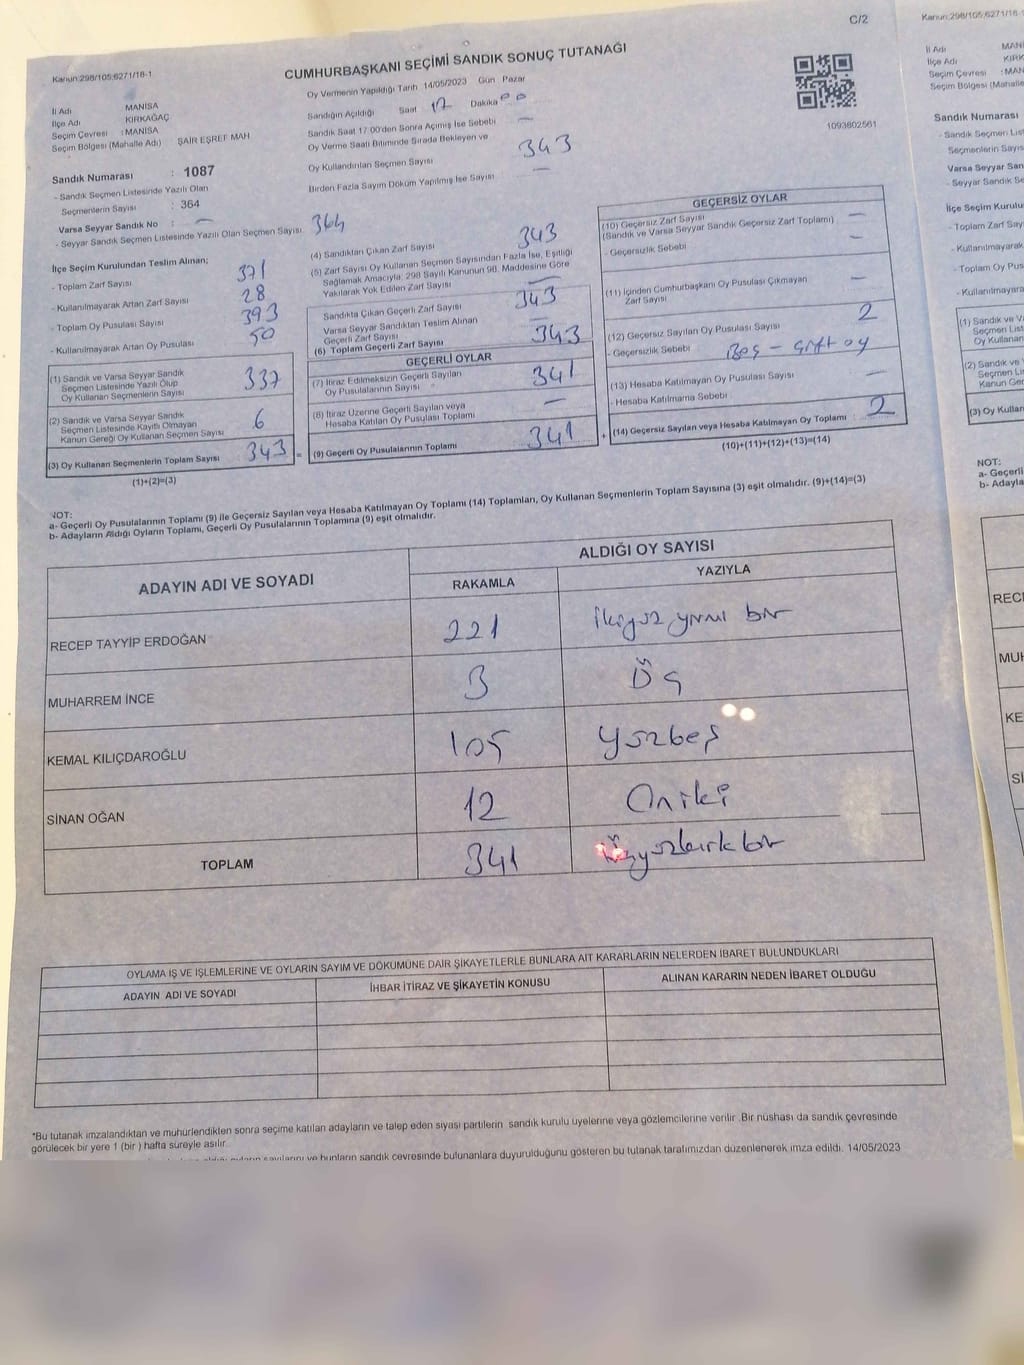 C/2
Kanun:298/105;6271/18-1
CUMHURBAŞKANI SEÇİMİ SANDIK SONUÇ TUTANAĞI
İl Adı MANİSA
İlçe Adı KIRKAĞAÇ
Seçim Çevresi : MANİSA
Seçim Bölgesi (Mahalle Adı) ŞAİR EŞREF MAH
Sandık Numarası : 1087
- Sandık Seçmen Listesinde Yazılı Olan
Seçmenlerin Sayısı : 364
Varsa Seyyar Sandık No : —
- Seyyar Sandık Seçmen Listesinde Yazılı Olan Seçmen Sayısı: 364
Oy Vermenin Yapıldığı Tarih 14/05/2023 Gün Pazar
Sandığın Açıldığı Saat 17 Dakika 00
Sandık Saat 17:00'den Sonra Açımış İse Sebebi —
Oy Verme Saati Bitiminde Sırada Bekleyen ve
Oy Kullandırılan Seçmen Sayısı 343
Birden Fazla Sayım Döküm Yapılmış İse Sayısı —
1093802561
İlçe Seçim Kurulundan Teslim Alınan;
- Toplam Zarf Sayısı 371
- Kullanılmayarak Artan Zarf Sayısı 28
- Toplam Oy Pusulası Sayısı 393
- Kullanılmayarak Artan Oy Pusulası 50
(1) Sandık ve Varsa Seyyar Sandık
Seçmen Listesinde Yazılı Olup
Oy Kullanan Seçmenlerin Sayısı 337
(2) Sandık ve Varsa Seyyar Sandık
Seçmen Listesinde Kayıtlı Olmayan
Kanun Gereği Oy Kullanan Seçmen Sayısı 6
(3) Oy Kullanan Seçmenlerin Toplam Sayısı 343 =
(1)+(2)=(3)
(4) Sandıktan Çıkan Zarf Sayısı 343
(5) Zarf Sayısı Oy Kullanan Seçmen Sayısından Fazla İse, Eşitliği
Sağlamak Amacıyla; 298 Sayılı Kanunun 98. Maddesine Göre
Yakılarak Yok Edilen Zarf Sayısı —
Sandıkta Çıkan Geçerli Zarf Sayısı 343
Varsa Seyyar Sandıktan Teslim Alınan
Geçerli Zarf Sayısı —
(6) Toplam Geçerli Zarf Sayısı 343
GEÇERLİ OYLAR
(7) İtiraz Edilmeksizin Geçerli Sayılan
Oy Pusulalarının Sayısı 341
(8) İtiraz Üzerine Geçerli Sayılan veya
Hesaba Katılan Oy Pusulası Toplamı —
(9) Geçerli Oy Pusulalarının Toplamı 341 +
GEÇERSİZ OYLAR
(10) Geçersiz Zarf Sayısı —
(Sandık ve Varsa Seyyar Sandık Geçersiz Zarf Toplamı)
- Geçersizlik Sebebi —
(11) İçinden Cumhurbaşkanı Oy Pusulası Çıkmayan
Zarf Sayısı —
(12) Geçersiz Sayılan Oy Pusulası Sayısı 2
- Geçersizlik Sebebi Boş - çift oy
(13) Hesaba Katılmayan Oy Pusulası Sayısı —
- Hesaba Katılmama Sebebi
(14) Geçersiz Sayılan veya Hesaba Katılmayan Oy Toplamı : 2
(10)+(11)+(12)+(13)=(14)
NOT:
a- Geçerli Oy Pusulalarının Toplamı (9) ile Geçersiz Sayılan veya Hesaba Katılmayan Oy Toplamı (14) Toplamları, Oy Kullanan Seçmenlerin Toplam Sayısına (3) eşit olmalıdır. (9)+(14)=(3)
b- Adayların Aldığı Oyların Toplamı, Geçerli Oy Pusulalarının Toplamına (9) eşit olmalıdır.
ADAYIN ADI VE SOYADI
ALDIĞI OY SAYISI
RAKAMLA YAZIYLA
RECEP TAYYİP ERDOĞAN 221 ikiyüz yirmi bir
MUHARREM İNCE 3 Üç
KEMAL KILIÇDAROĞLU 105 Yüzbeş
SİNAN OĞAN 12 Oniki
TOPLAM 341 üçyüzkırk bir
OYLAMA İŞ VE İŞLEMLERİNE VE OYLARIN SAYIM VE DÖKÜMÜNE DAİR ŞİKAYETLERLE BUNLARA AİT KARARLARIN NELERDEN İBARET BULUNDUKLARI
ADAYIN ADI VE SOYADI İHBAR İTİRAZ VE ŞİKAYETİN KONUSU ALINAN KARARIN NEDEN İBARET OLDUĞU
*Bu tutanak imzalandıktan ve mühürlendikten sonra seçime katılan adayların ve talep eden siyasi partilerin sandık kurulu üyelerine veya gözlemcilerine verilir .Bir nüshası da sandık çevresinde
görülecek bir yere 1 (bir ) hafta süreyle asılır.
sayılarını ve bunların sandık çevresinde bulunanlara duyurulduğunu gösteren bu tutanak tarafımızdan düzenlenerek imza edildi. 14/05/2023
Kanun:298/105;6271/18-
İl Adı MANİ
İlçe Adı KIRK
Seçim Çevresi : MAN
Seçim Bölgesi (Mahalle
Sandık Numarası
- Sandık Seçmen List
Seçmenlerin Sayıs
Varsa Seyyar San
- Seyyar Sandık Se
İlçe Seçim Kurulu
- Toplam Zarf Say
- Kullanılmayarak
- Toplam Oy Pusu
- Kullanılmayara
(1) Sandık ve V
Seçmen List
Oy Kullanan
(2) Sandık ve
Seçmen Li
Kanun Ger
(3) Oy Kullan
NOT:
a- Geçerli
b- Adayla
RECE
MUH
KE
Sİ